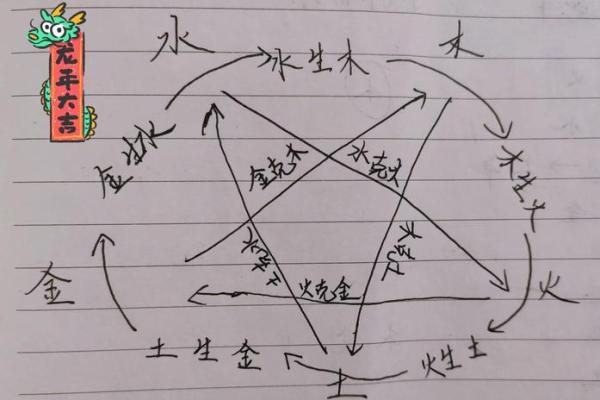 龙年大吉
水
水生木
木
金生水
木生火
金克木
水克火
土克水
木克土
金
火克金
火
土生金
土
火生土